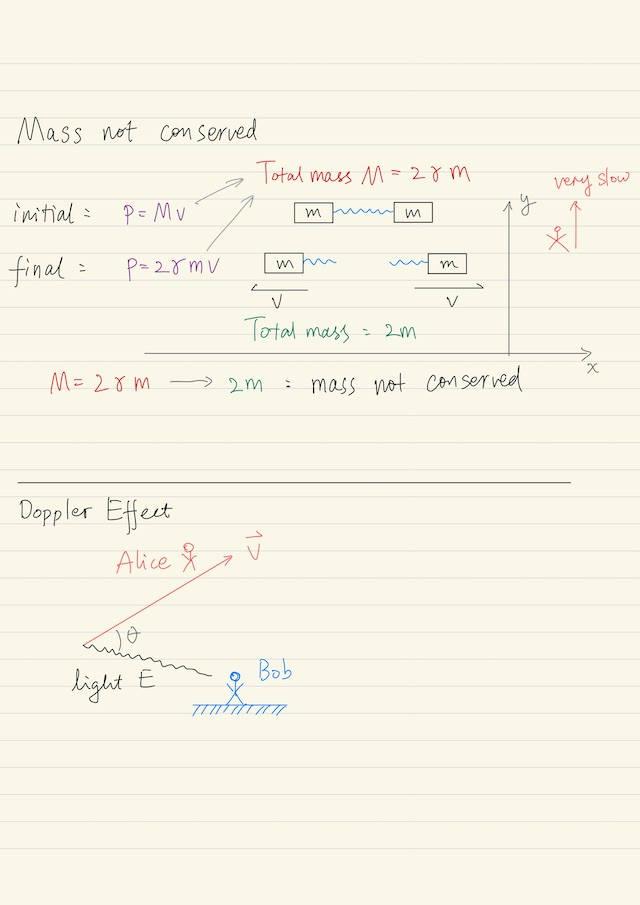 Mass not conserved
Total mass M = 2γm
very slow
initial: p = Mv
m m
y
final: p = 2γmv
m m
v v
Total mass = 2m
x
M = 2γm → 2m : mass not conserved
Doppler Effect
Alice v⃗
θ
light E
Bob